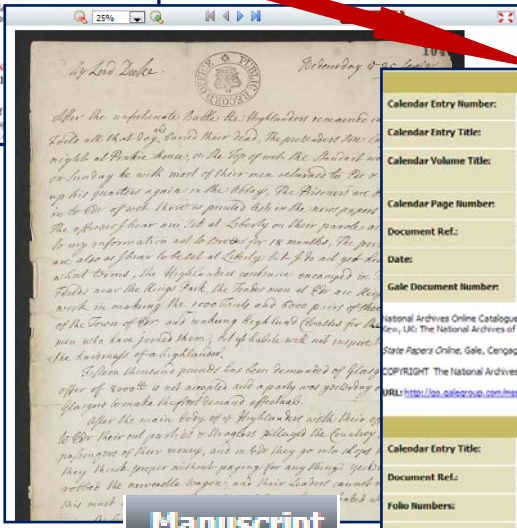 25%
104
My Lord Duke. Wednesday
PUBLIC RECORD OFFICE
After the unfortunate Battle the Highlanders remained
Fields all that day, buried their Dead, The pretenders Son
night at Pinkie house, on the Top of wch the Standart
on Sunday he with most of their men returned to Edr &
up his quarters again in the Abbay, The Prisoners are
in to Edr of wch there is printed lists in the news papers
The officers I hear are set at Liberty on their paroles
to my information not to serve for 18 months, The
are also as I hear to be set at Liberty but I do not yet
what terms, the Highlanders continue encamped in
Fields near the Kings Park, the Trades men at Edr are
work in making the 1000 Tents and 6000 pairs of
of the Town of Edr and making highland Cloaths for
men who have joined them, but ye habite will not inspire
the hardiness of a highlander.
Fifteen thousand pounds has been demanded of
offer of 5000 is not accepted and a party was yesterday
Glasgow to make the fort demand effectual.
After the main body of ye Highlanders with their
to Edr their out parties & straglers pillaged the Countrey
passengers of their money, and in Edr they go into shops
they think proper without paying for any thing
robbed the newcastle wagon, and their Leaders cannot
this must
Manuscript
Calendar Entry Number:
Calendar Entry Title:
Calendar Volume Title:
Calendar Page Number:
Document Ref.:
Date:
Gale Document Number:
National Archives Online Catalogue
Kew, UK: The National Archives of
State Papers Online, Gale, Cengag
COPYRIGHT The National Archives
URL: http://go.galegroup.com/mss
Calendar Entry Title:
Document Ref.:
Folio Numbers: